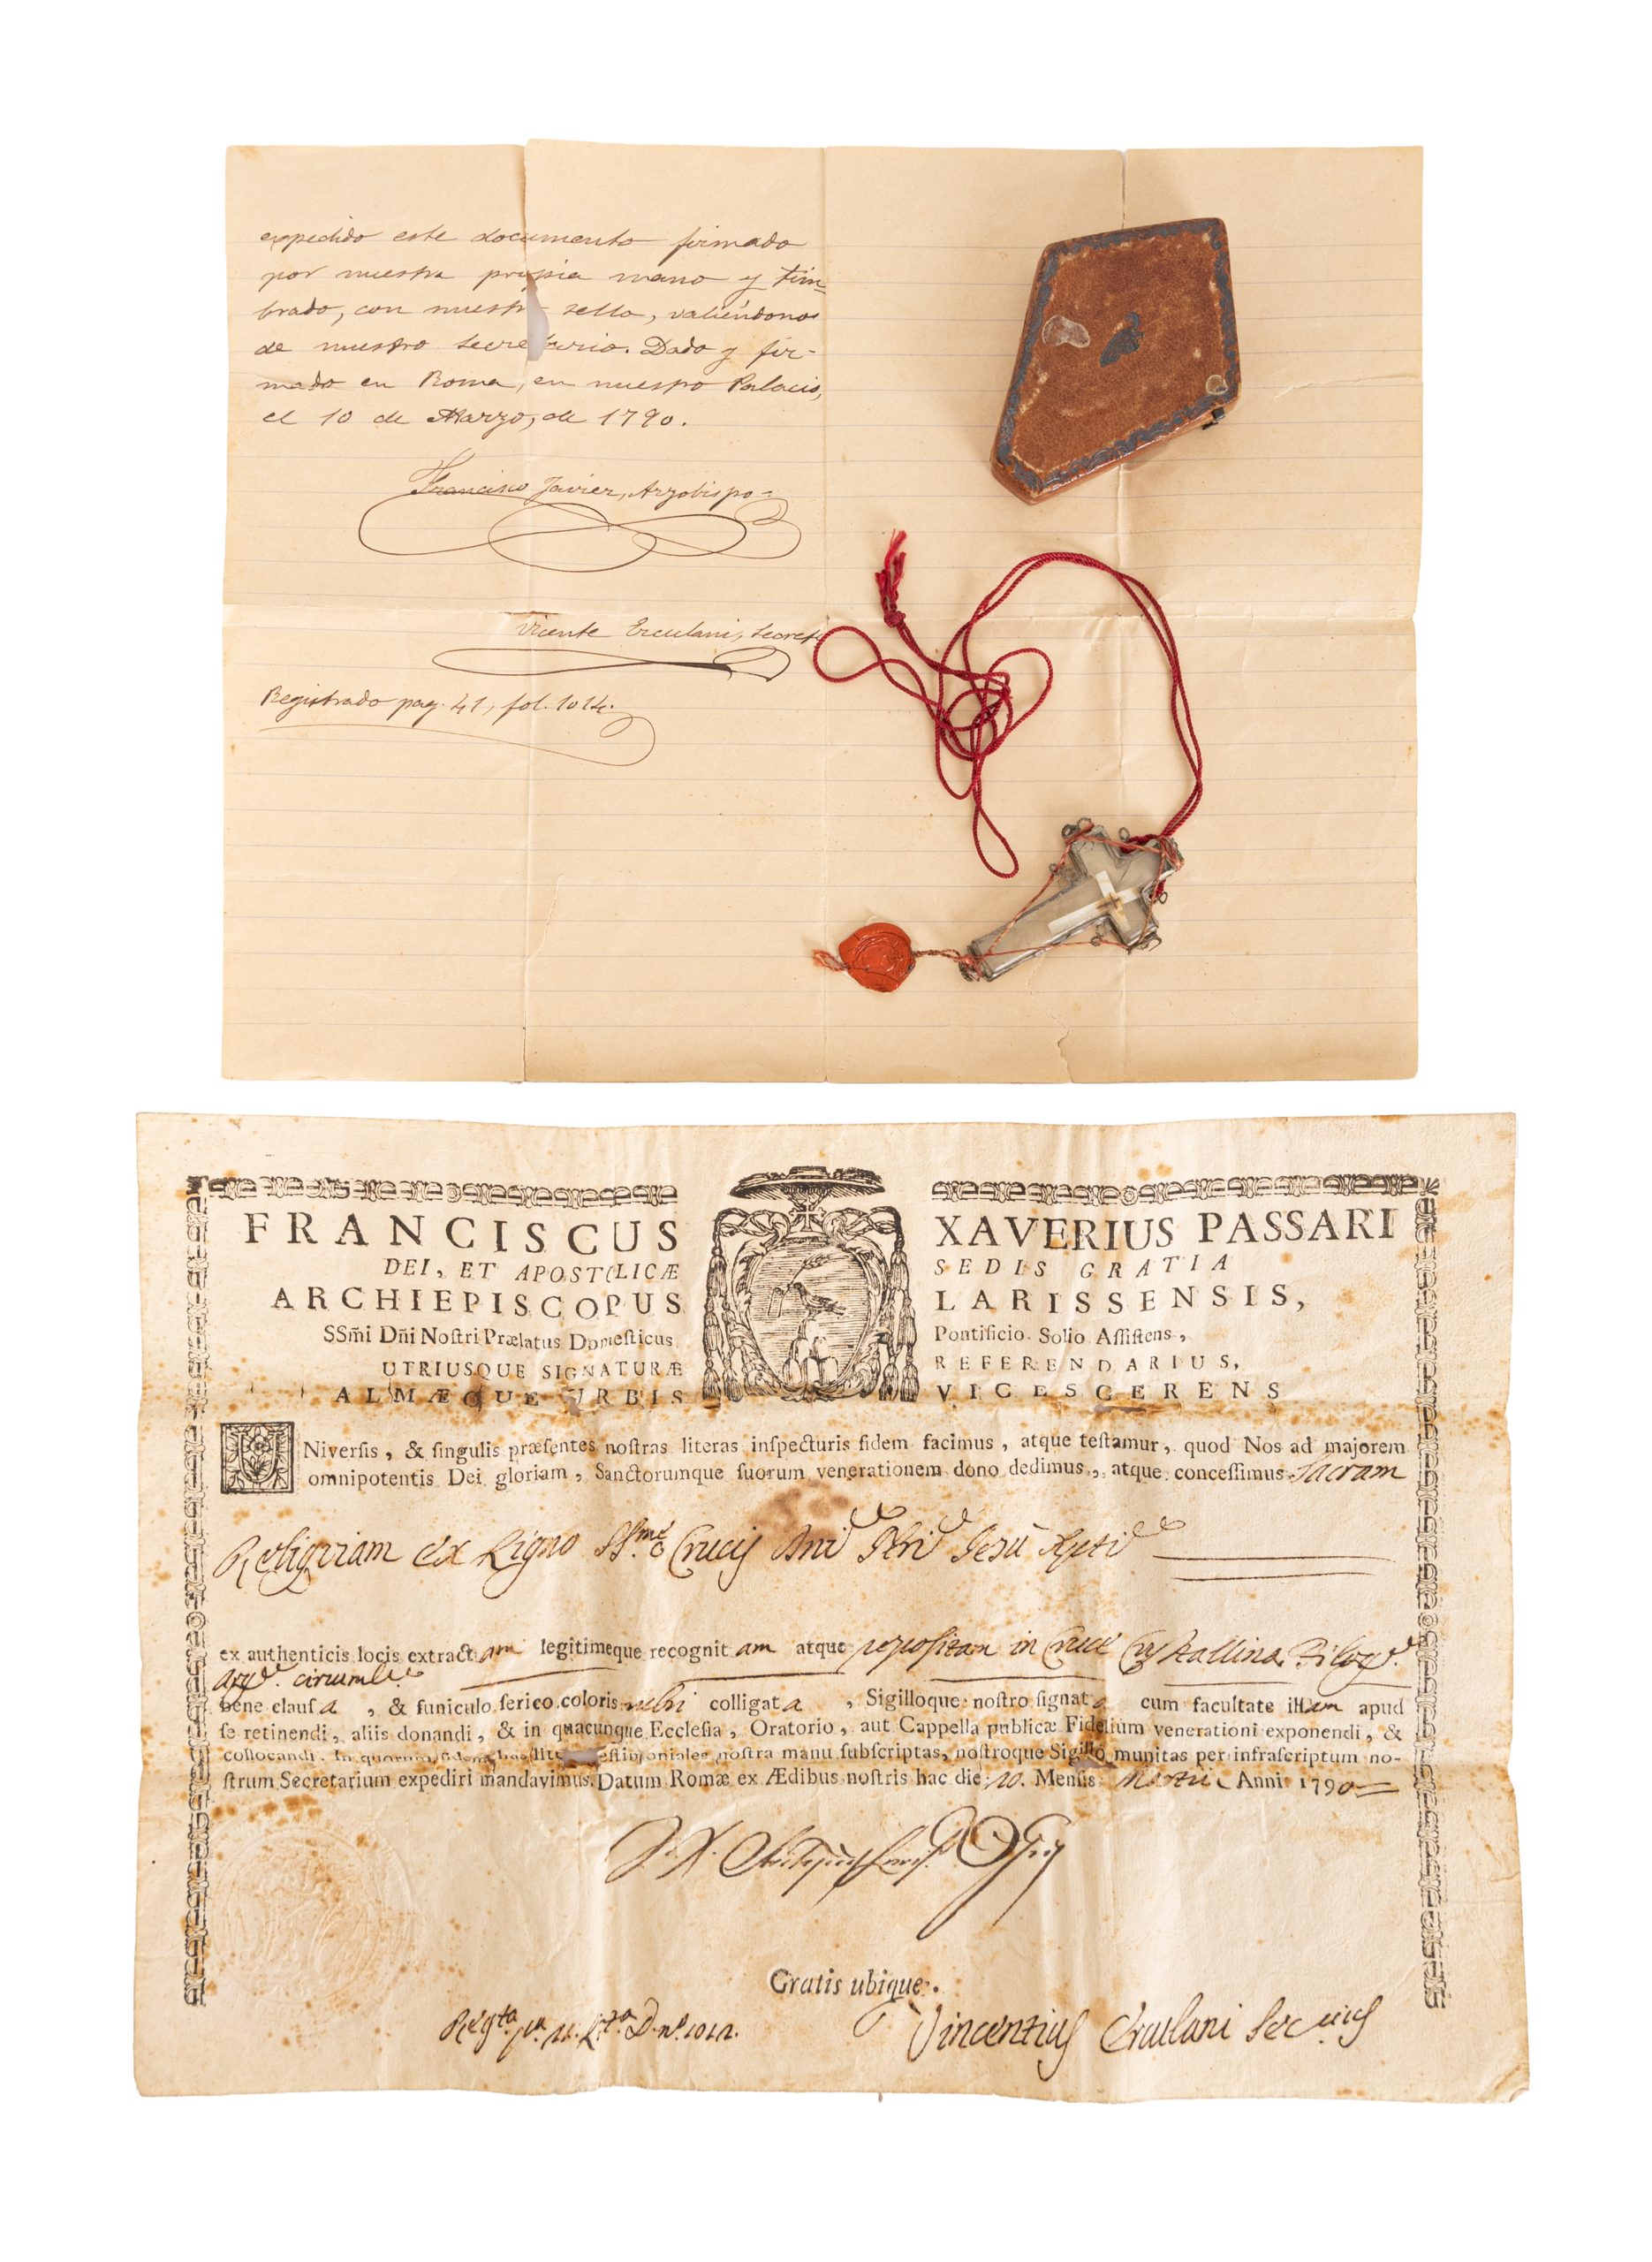 expedido este documento firmado
por nuestra propia mano y tim-
brado, con nuestro sello, valiéndonos
de nuestro secretario. Dado y fir-
mado en Roma, en nuestro Palacio,
el 10 de Marzo, de 1790.
Francisco Javier, Arzobispo-
Vicente Erculani, Secret
Registrado pag. 41, fol. 1014.
FRANCISCUS XAVERIUS PASSARI
DEI, ET APOSTOLICÆ SEDIS GRATIA
ARCHIEPISCOPUS LARISSENSIS,
SSm̃i Dñi Noſtri Prælatus Domeſticus, Pontificio Solio Aſſiſtens,
UTRIUSQUE SIGNATURÆ REFERENDARIUS,
ALMÆQUE URBIS VICESGERENS
UNiverſis, & ſingulis præſentes noſtras literas inſpecturis fidem facimus, atque teſtamur, quod Nos ad majorem
omnipotentis Dei gloriam, Sanctorumque ſuorum venerationem dono dedimus, atque conceſſimus Sacram
Reliquiam ex Ligno SSmæ Crucis Dni Nri Jesu Xpti
ex authenticis locis extractam legitimeque recognitam atque repositam in Cruce Crystallina
circum
bene clauſa, & funiculo ſerico coloris rubri colligata, Sigilloque noſtro ſignata cum facultate illam apud
ſe retinendi, aliis donandi, & in quacunque Eccleſia, Oratorio, aut Cappella publicæ Fidelium venerationi exponendi, &
collocandi. In quorum fidem has literas teſtimoniales noſtra manu ſubſcriptas, noſtroque Sigillo munitas per infraſcriptum no-
ſtrum Secretarium expediri mandavimus. Datum Romæ ex Ædibus noſtris hac die 10. Menſis Martii Anni 1790
Gratis ubique.
Vincentius Erculani Secrius